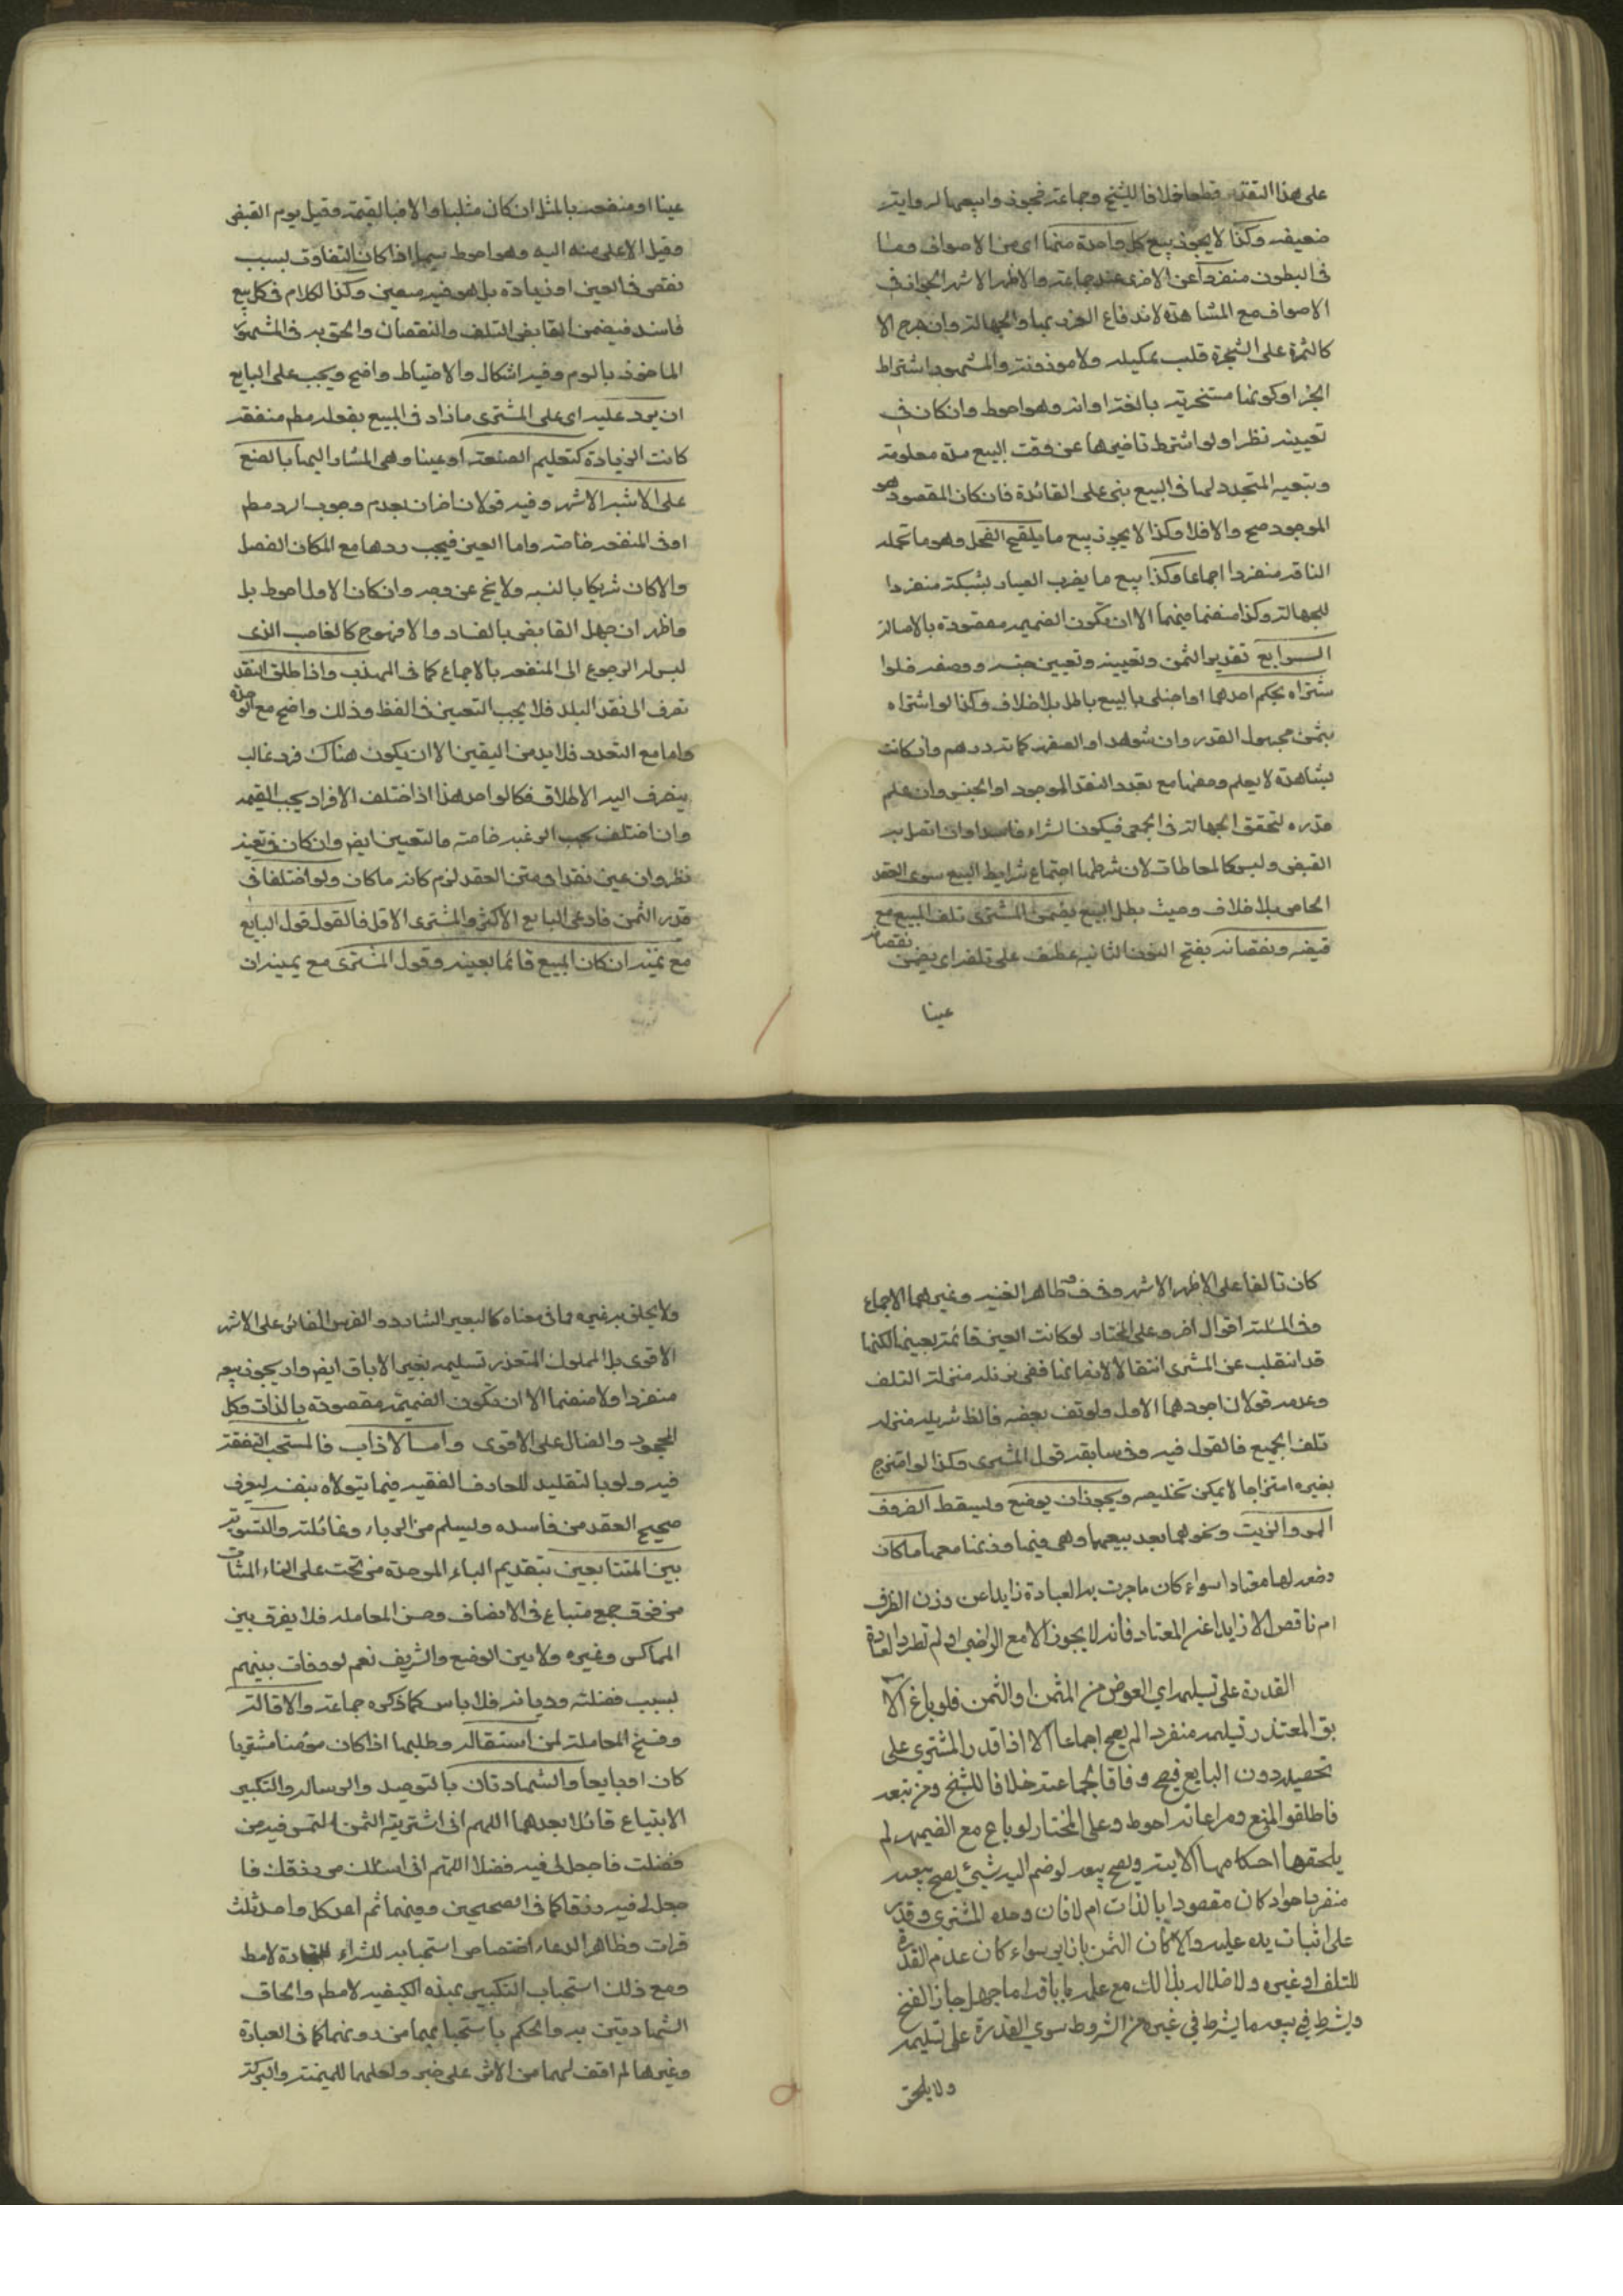 على هذا التقدير قطعا خلافا للشيخ وجماعة فجوزوا بيعها لرواية
ضعيفة وكذا لا يجوز بيع كل واحدة منهما اي من الاصواف وما
في البطون منفردا عن الاخرى عند جماعة والاظهر الاشهر الجواز في
الاصواف مع المشاهدة لاندفاع الغرر بها والجهالة وان هي الا
كالثمرة على الشجرة قلب بمكيلة ولا موزونة والمشهور اشتراط
الجز او كونها مستجزية بالفتر اوانه وهو احوط وان كان في
تعيينه نظر ولو اشترط تاخيرها عن وقت البيع مدة معلومة
وتبعية المتجدد لها في البيع بني على القائدة فان كان المقصود هو
الموجود صح والا فلا وكذا لا يجوز بيع ما يلقح الفحل وهو ما تحمله
الناقة منفردا اجماعا وكذا بيع ما يضرب الصياد بشبكته منفردا
للجهالة وكذا منضما فيهما الا ان تكون الضميمة مقصودة بالاصالة
الرابع تقدير الثمن وتعيينه وتعيين جنسه ووصفه فلو ا
شتراه بحكم احدهما او اجنبي فالبيع باطل بلا خلاف وكذا لو اشتراه
بثمن مجهول القدر وان شوهد او الصفة كماة درهم وان كانت
مشاهدة لا يعلم وصفها مع تعدد النقد الموجود او الجنس وان علم
قدره لتحقق الجهالة في الجميع فيكون الشراء فاسدا وان اتصل به
القبض وليس كالمعاطات لان شرطها اجتماع شرايط البيع سوى العقد
الخاص بلا خلاف وحيث بطل البيع يضمن المشتري تلف المبيع مع
قبضه ونقصانه بفتح النون الثانية عطف على تلف اي يضمن نقصانه
عينا
عينا او منفعة بالمثل ان كان مثليا والا فبالقيمة وقيل يوم القبض
وقيل الاعلى منه اليه وهو احوط سيما اذا كان التفاوت بسبب
نقص في العين او زيادة بل هو فيه متعين وكذا الكلام في كل بيع
فاسد فيضمن القابض التلف والنقصان والحق به في المشهور
الماخوذ بالسوم وفيه اشكال والاحتياط واضح ويجب على البايع
ان يرد عليه اي على المشتري ما زاد في المبيع بفعله مطم منفعة
كانت الزيادة كتعليم الصنعة او عينا وهي المشار اليها بالصنع
على الاشبه الاشهر وفيه قولان اخران بعدم وجوب الرد مطم
او في المنفعة خاصة واما العين فيجب ردها مع امكان الفصل
والا كان شريكا بالنسبة ولا يخ عن وجه وان كان الاول احوط بل
واظهر ان جهل القابض بالفساد والا فهو ح كالغاصب الذي
ليس له الرجوع الى المنفعة بالاجماع كما في المهذب واذا اطلق النقد
تصرف الى نقد البلد فلا يجب التعيين في اللفظ وذلك واضح مع الوحدة
واما مع التعدد فلا بد من اليقين الا ان يكون هناك فرد غالب
ينصرف اليه الاطلاق فكالواحد هذا اذا اختلف الافراد بحسب القيمة
وان اختلف بحسب الرغبة خاصة فالتعيين ايضا وان كان في تعينه
نظر وان عين نقدا في متن العقد لزم كائنه ما كان ولو اختلفا في
قدر الثمن فادعى البايع الاكثر والمشتري الاقل فالقول قول البايع
مع يمينه ان كان المبيع قائما بعينه وقول المشتري مع يمينه ان
كان تالفا على الاظهر الاشهر وفي ف وظاهر الغنية وغيرهما الاجماع
وفي المسئلة اقوال اخر وعلى المختار لو كانت العين قائمة بعينها لكنها
قد انتقلت عن المشتري انتقالا لازما ففي تنزيله منزلة التلف
وعدمه قولان اجودهما الاول ولو تلف بعضه فالظ تنزيله منزلة
تلف الجميع فالقول فيه وفي سابقه قول المشتري وكذا لو امتزج
بغيره امتزاجا لا يمكن تخليصه ويجوز ان يوضع ويسقط الضروف
السمن والزيت ونحوهما بعد بيعهما وهي فيها وزنها معهما ما كان
وضعه لها معتادا سواء كان ما جرت به العادة زايدا عن وزن الظرف
ام ناقص الا زايدا عن المعتاد فانه لا يجوز الا مع التراضي او لم تطرد العادة
القدرة على تسليمه اي العوض من المثمن او الثمن فلو باع الا
بق المتعذر تسليمه منفردا لم يصح اجماعا الا اذا قدر المشتري على
تحصيله دون البايع فيصح وفاقا لجماعة خلافا للشيخ ومن تبعه
فاطلقوا المنع ومراعاته احوط وعلى المختار لو باع مع الضميمة لم
يلحقها احكامها الاتية ويصح بيعه لو ضم اليه شيئ يصح بيعه
منفردا سواء كان مقصودا بالذات ام لا فان وجده المشتري وقدر
على اثبات يده عليه والا كان الثمن بازائه سواء كان عدم القدرة
للتلف او غيره ولا خيار له بذلك مع علمه باباقه اما جهل جاز الفسخ
ويشترط في بيعه ما يشترط في غيره من الشروط سوى القدرة على تسليمه
ولا يلحق
ولا يلحق به غيره مما في معناه كالبعير الشارد والفرس الغائر على الاشهر
الاقوى بل المملوك المتعذر تسليمه بغير الاباق ايضا ولا يجوز بيعه
منفردا ولا منضما الا ان تكون الضميمة مقصودة بالذات وكل
المجحود والضال على الاقوى واما الاداب فالمستحب التفقه
فيه ولو بالتقليد للعارف الفقيه فيما يتولاه بنفسه ليعرف
صحيح العقد من فاسده ويسلم من الرباء وغائلته والتسوية
بين المتبايعين بتقديم الباء الموحدة من تحت على الياء المثناة
من فوق جمع متباع في الانصاف وحسن المعاملة فلا يفرق بين
المماكس وغيره ولا بين الوضيع والشريف نعم لو وفات بينهم
بسبب فضيلة وديانة فلا باس كما ذكره جماعة والاقالة
وفسخ المعاملة لمن استقاله وطلبها اذا كان مؤمنا مشتريا
كان او بايعا والشهادتان بالتوحيد والرسالة والتكبير
الابتياع قائلا بعدهما اللهم اني اشتريته التمس فيه من
فضلك فاجعل لي فيه فضلا اللهم اني اسئلك من رزقك فا
جعل لي فيه رزقا كما في الصحيحين وفيهما ثم اعد كل واحد ثلث
مرات وظاهر الدعاء اختصاص استحبابه للشراء للتجارة لا مط
ومع ذلك استحباب التكبير بهذه الكيفية لا مطم والحاق
الشهادتين به والحكم باستحبابهما من دونها كما في العبارة
وغيرها لم اقف لهما من الاثر على خبر ولعلهما للميمنة والبركة